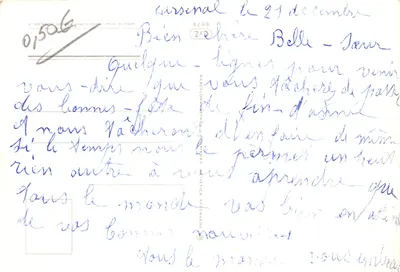 carsenal le 21 decembre
0,50€
Bien chère Belle-Sœur
Quelque-lignes pour venir
vous-dire que vous tâcherez de passer
des bonnes-fête de fin-d'année
et nous tâcherons d'en faire de même
si le temps nous le permet un peut
rien autre à vous aprendre que
tous le monde vas bien en
de vos bonne nouvelles
tous le monde vous embrasse